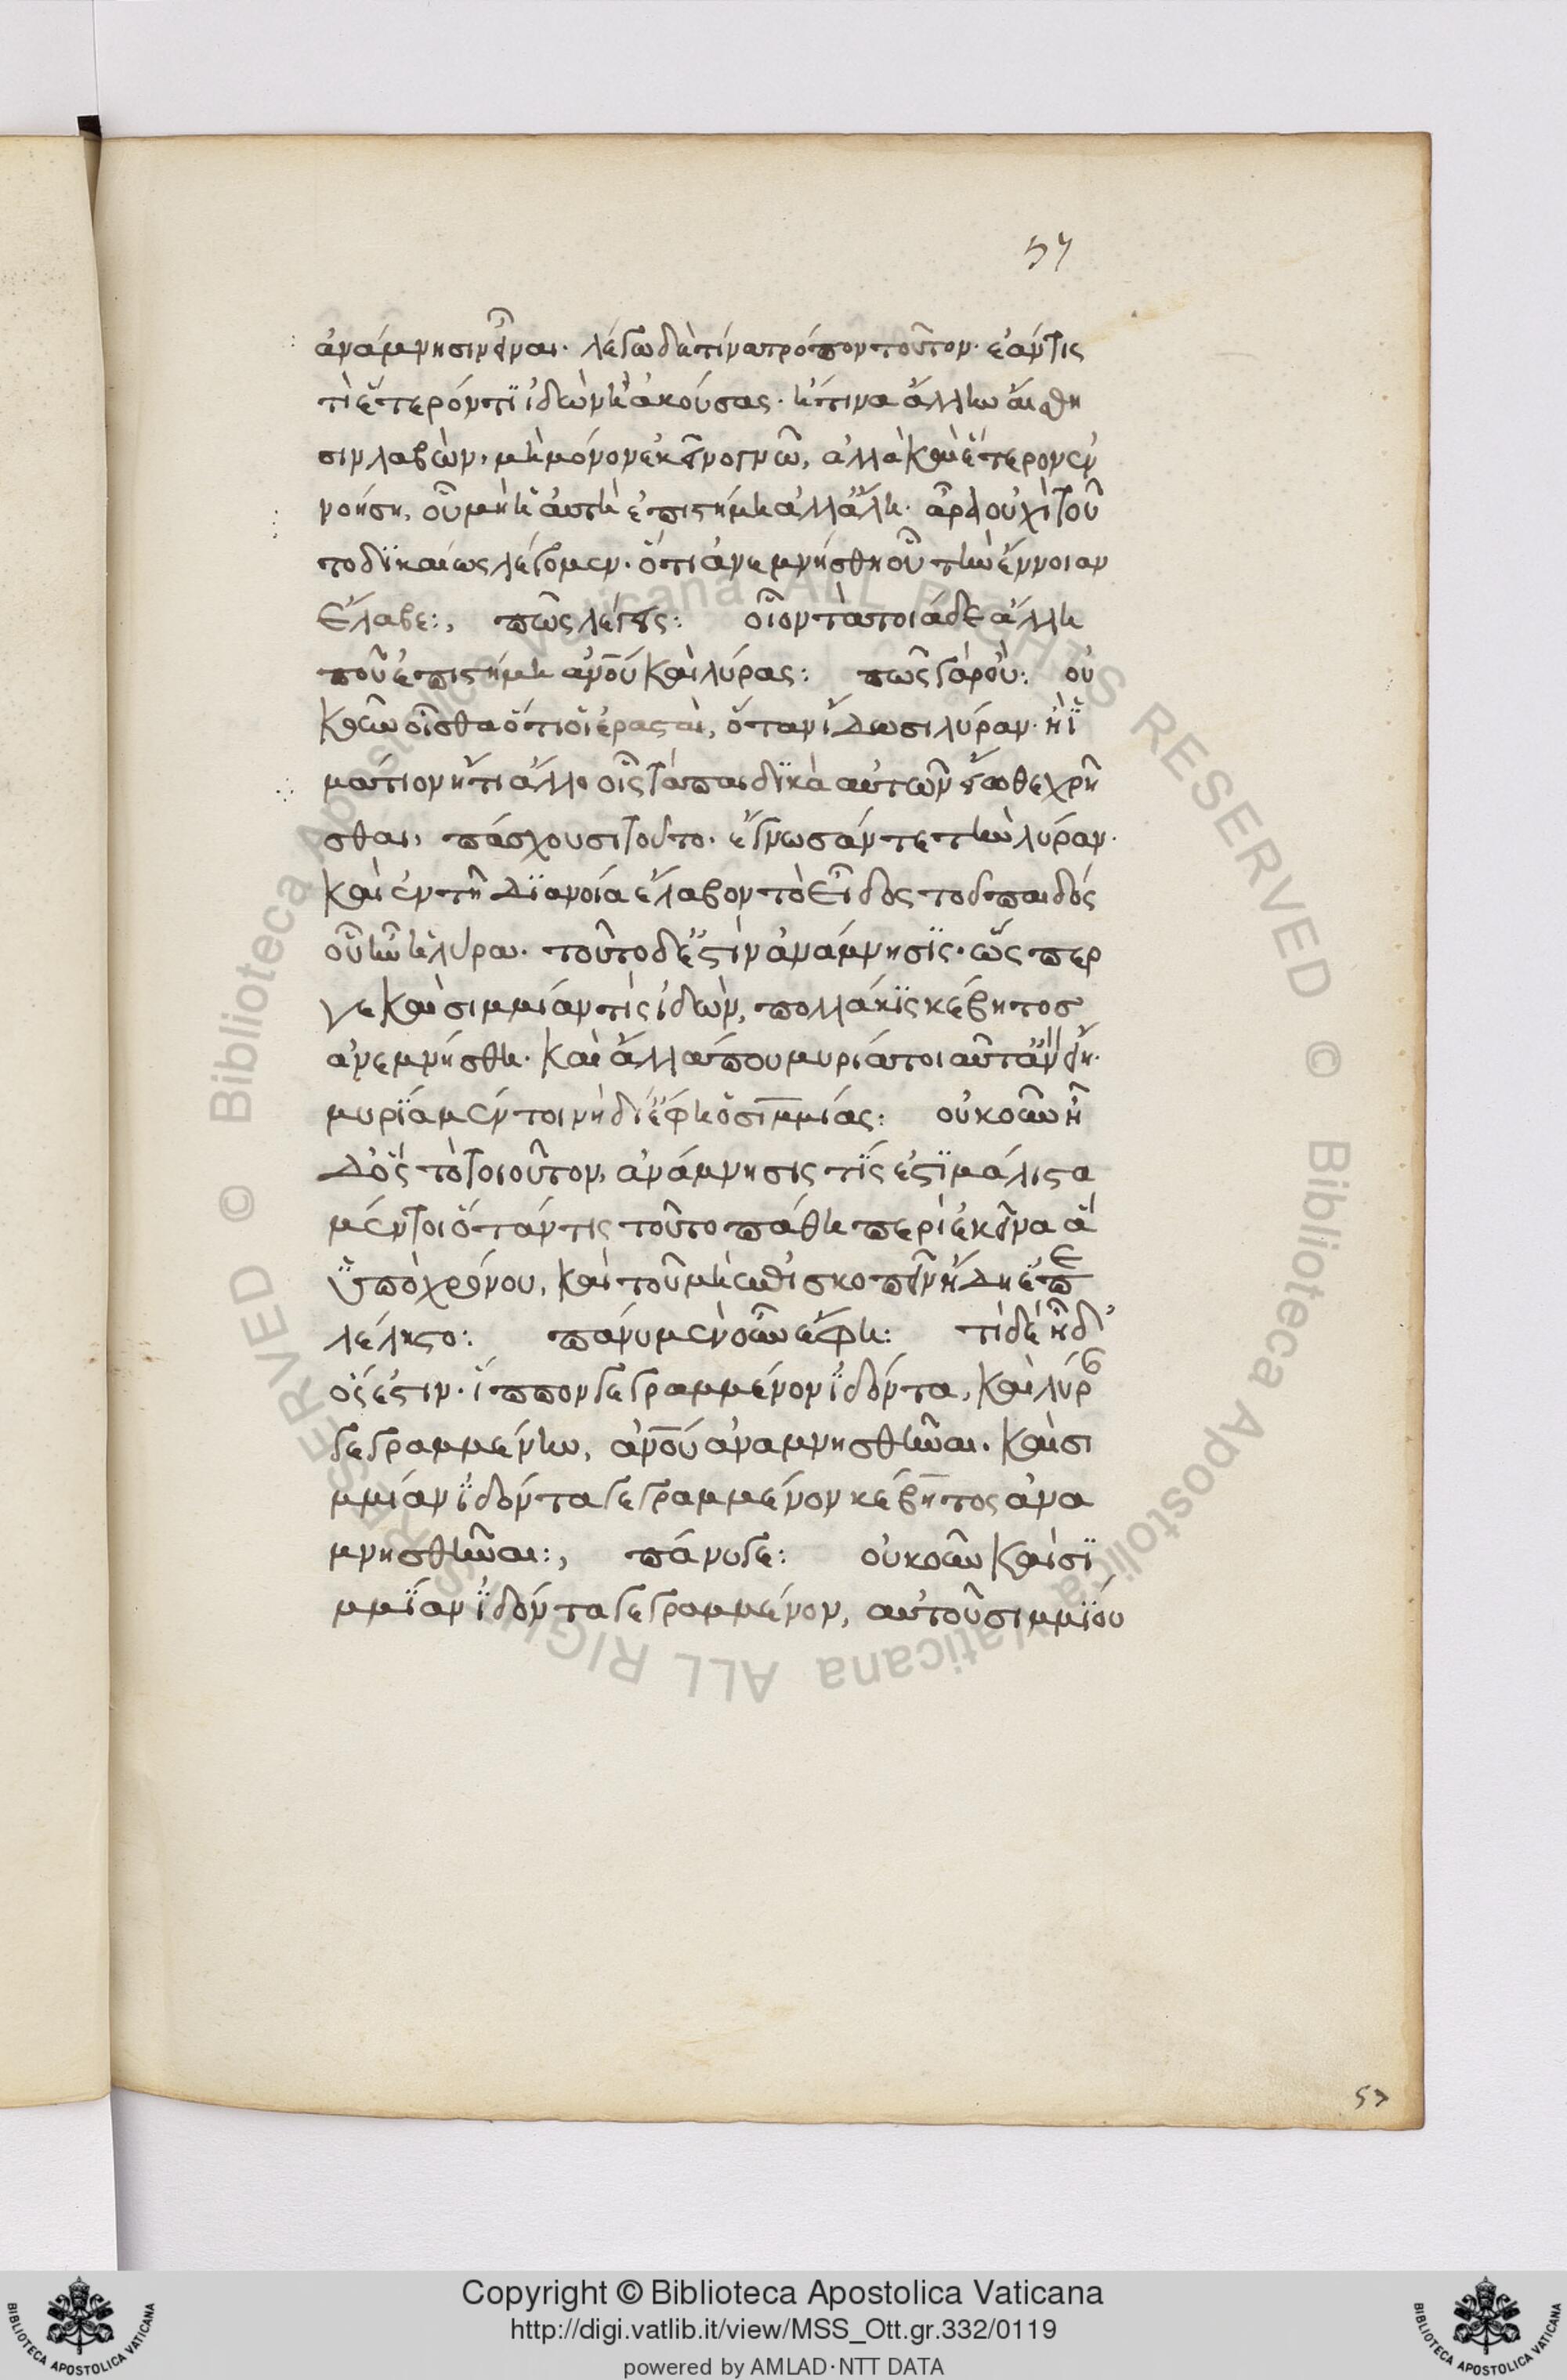 57
ἀνάμνησιν εἶναι· λέγω δὲ τίνα τρόπον τοῦτον· ἐάν τις
τὶ ἕτερόν τι ἰδὼν ἢ ἀκούσας· ἤ τινα ἄλλην αἴσθη
σιν λαβὼν, μὴ μόνον ἐκεῖνο γνῶ, ἀλλὰ καὶ ἕτερον ἐν
νοήση, οὗ μὴ ἡ αὐτὴ ἐπιστήμη ἀλλ' ἄλλη· ἆρα οὐχὶ τοῦ
το δικαίως λέγομεν· ὅτι ἀνεμνήσθη οὗ τὴν ἔννοιαν
ἔλαβε:, πῶς λέγεις: οἷον τὰ τοιάδε ἄλλη
που ἐπιστήμη ἀνοῦ καὶ λύρας: πῶς γὰρ οὔ: οὐ
κοῦν οἶσθα ὅτι οἱ ἐρασταὶ, ὅταν ἴδωσι λύραν· ἢ ἱ
μάτιον ἤ τι ἄλλο οἷς τὰ παιδικὰ αὐτῶν εἴωθε χρῆ
σθαι, πάσχουσι τοῦτο· ἔγνωσάν τε τὴν λύραν·
καὶ ἐν τῆ διανοία ἔλαβον τὸ εἶδος τοῦ παιδός
οὗ ἦν ἡ λύρα· τοῦτο δέ ἐστιν ἀνάμνησις· ὥσπερ
γε καὶ σιμμίαν τὶς ἰδὼν, πολλάκις κέβητος
ἀνεμνήσθη· καὶ ἄλλά που μυρία τοιαῦτ' ἂν εἴη·
μυρία μέντοι νὴ δί' ἔφη ὁ σιμμίας: οὐκοῦν ἦ
δ' ὃς τὸ τοιοῦτον, ἀνάμνησις τίς ἐστι μάλιστα
μέντοι ὅτάν τις τοῦτο πάθη περὶ ἐκεῖνα ἃ
ὑπὸ χρόνου, καὶ τοῦ μὴ ἐπισκοπεῖν ἤδη ἐπε
λέληστο: πάνυ μὲν οὖν ἔφη: τί δὲ ἦ δ'
ὅς ἔστιν· ἵππον γεγραμμένον ἰδόντα, καὶ λύραν
γεγραμμένην, ἀνοῦ ἀναμνησθῆναι· καὶ σι
μμίαν ἰδόντα γεγραμμένον κέβητος ἀνα
μνησθῆναι:, πάνυ γε: οὐκοῦν καὶ σι
μμίαν ἰδόντα γεγραμμένον, αὐτοῦ σιμμίου
57
Copyright © Biblioteca Apostolica Vaticana
http://digi.vatlib.it/view/MSS_Ott.gr.332/0119
powered by AMLAD·NTT DATA
© Biblioteca Apostolica Vaticana ALL RIGHTS RESERVED © Biblioteca Apostolica Vaticana ALL RIGHTS RESERVED
BIBLIOTECA APOSTOLICA VATICANA
BIBLIOTECA APOSTOLICA VATICANA